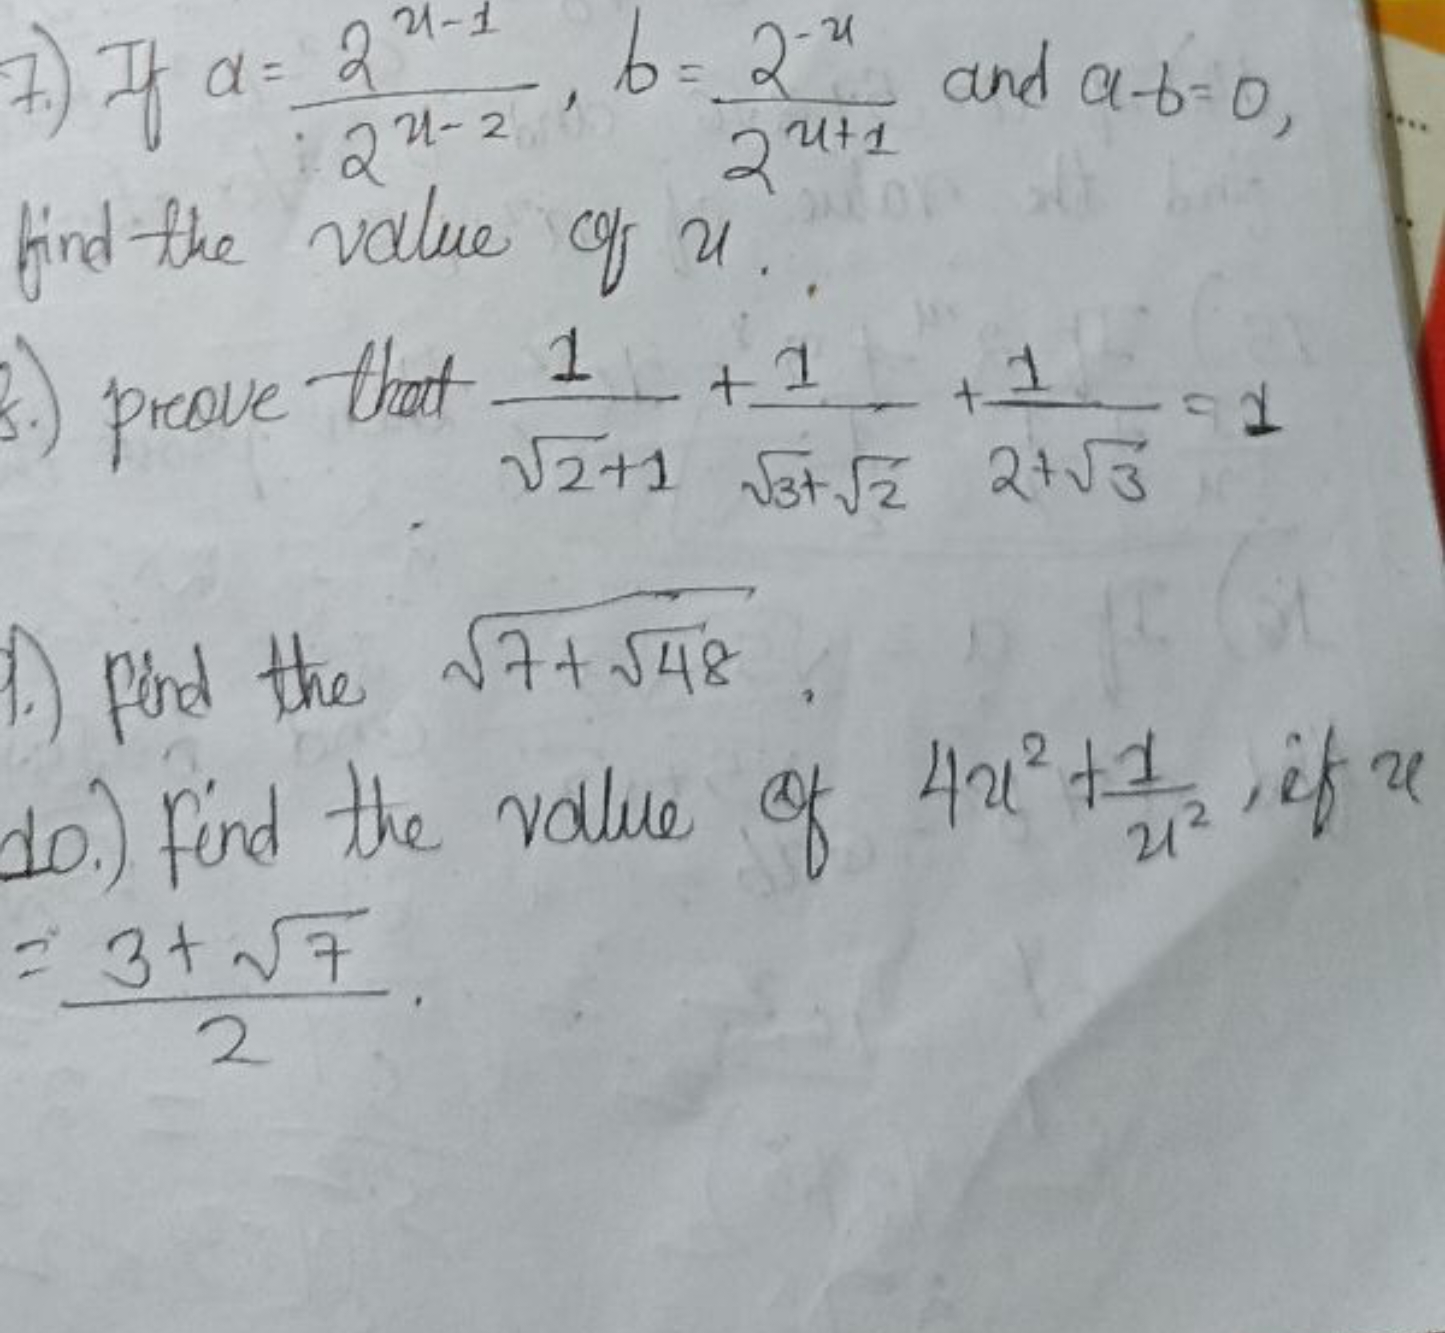 7.) If a = 2^(x-1) / 2^(x-2), b = 2^(-x) / 2^(x+1) and a-b=0,
find the value of x.
8.) prove that 1/(√2+1) + 1/(√3+√2) + 1/(2+√3) = 1
9.) find the √(7+√48).
10.) find the value of 4x² + 1/x², if x
= (3+√7)/2.